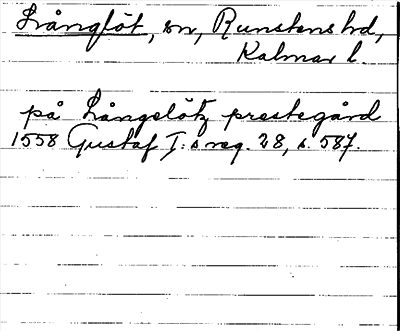 Långlöt, sn, Runstens hd,
Kalmar l.
på Långelötz prestegård
1558 Gustaf I:s reg. 28, s. 587.